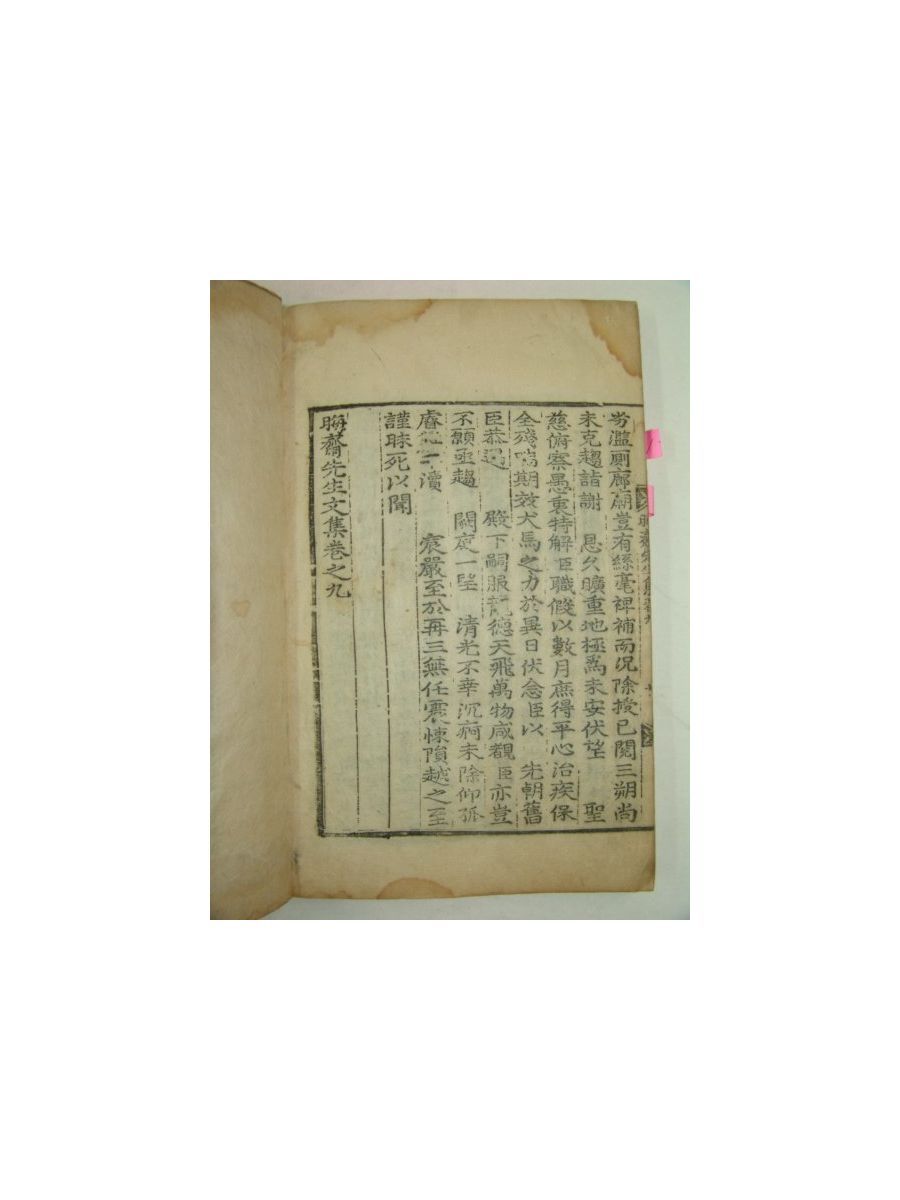 劣濫厠廊廟豈有絲毫裨補而况除授已閱三朔尚
未克趨詣謝 恩久曠重地極爲未安伏望 聖
慈俯察愚衷特解臣職假以數月庶得平心治疾保
全殘喘期效犬馬之力於異日伏念臣以 先朝舊
臣恭遇 殿下嗣服龍德天飛萬物咸覩臣亦豈
不願亟趨 闕庭一望 淸光不幸沉痾未除仰孤
睿 二瀆 宸嚴至於再三無任震悚隕越之至
謹昧死以聞
晦齋先生文集卷之九